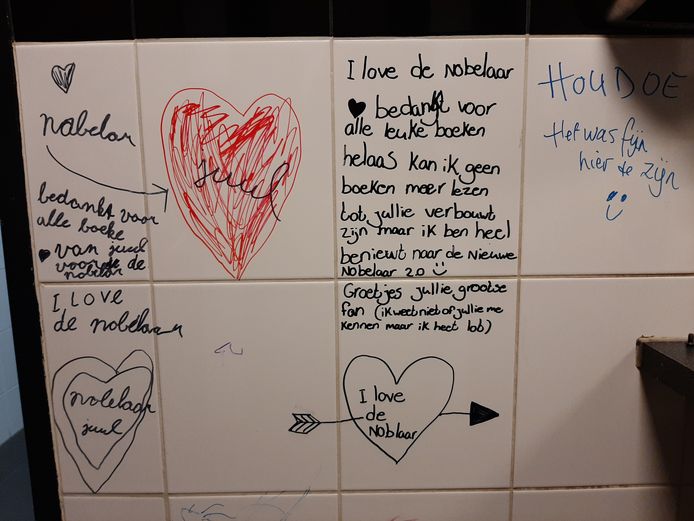 nobelaar
juul
bedankt voor
alle boeke
van juul
voor de
nobelaar
I LOVE
de nobelaar
nobelaar
juul
I love de Nobelaar
bedankt voor
alle leuke boeken
helaas kan ik geen
boeken meer lezen
tot jullie verbouwt
zijn maar ik ben heel
benieuwt naar de Nieuwe
Nobelaar 2.0
Groetjes jullie grootse
fan (ik weet niet of jullie me
kennen maar ik heet lot)
I love
de
Noblaar
HOUDOE
Het was fijn
hier te zijn